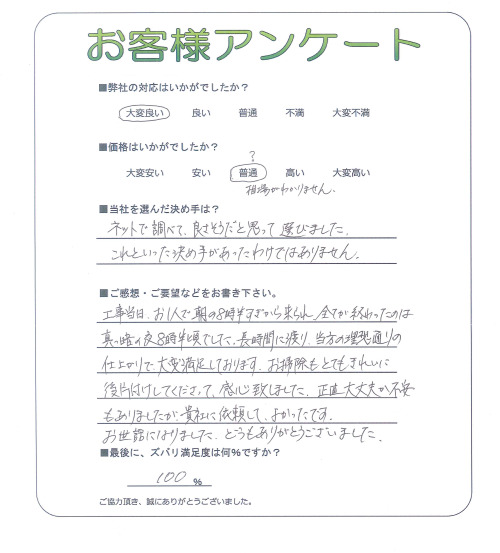 お客様アンケート
■弊社の対応はいかがでしたか？
大変良い 良い 普通 不満 大変不満
■価格はいかがでしたか？
？
大変安い 安い 普通 高い 大変高い
相場がわかりません。
■当社を選んだ決め手は？
ネットで調べて、良さそうだと思って選びました。
これといった決め手があったわけではありません。
■ご感想・ご要望などをお書き下さい。
工事当日、お1人で朝の8時半すぎから来られ、全てが終わったのは
真っ暗の夜8時半頃でした。長時間に渡り、当方の理想通りの
仕上がりで、大変満足しております。お掃除もとてもきれいに
後片付けしてくださって、感心致しました。正直大丈夫か不安
もありましたが貴社に依頼して、よかったです。
お世話になりました。どうもありがとうございました。
■最後に、ズバリ満足度は何%ですか？
100 %
ご協力頂き、誠にありがとうございました。